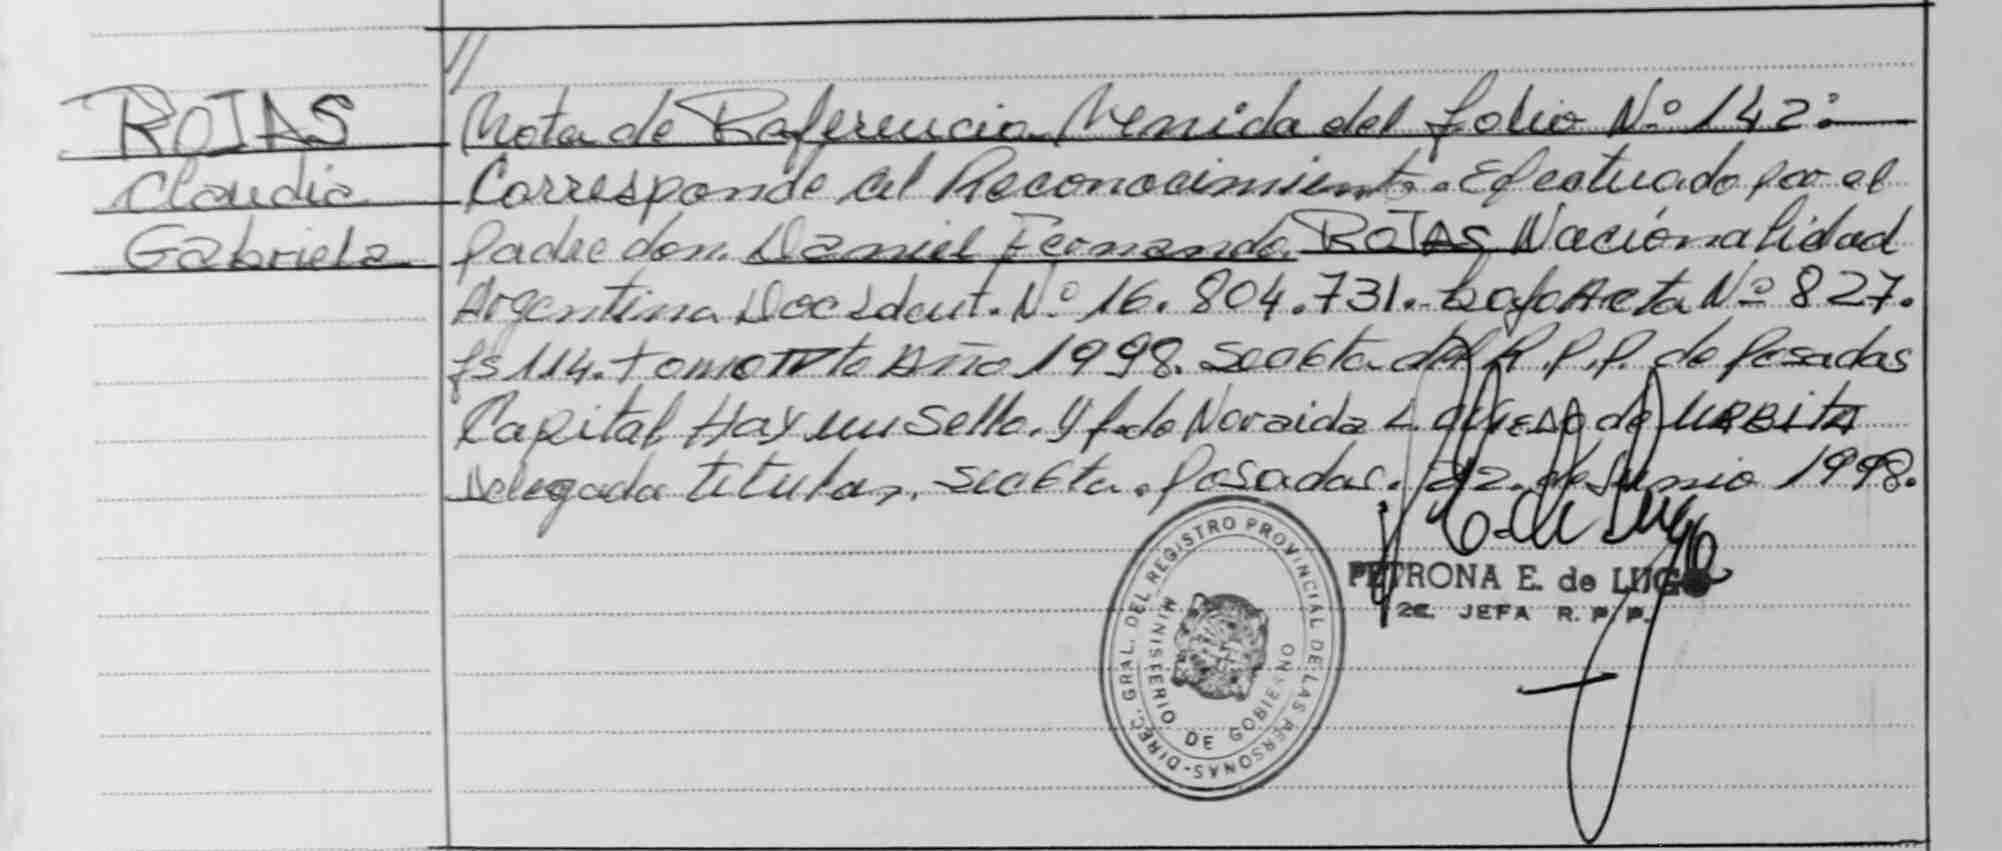 //
ROJAS
Claudia
Gabriela
Nota de Referencia Venida del folio Nº 142:
Corresponde al Reconocimiento. Efectuado por el
padre don. Daniel Fernando ROJAS Nacionalidad
Argentina Doc Ident. Nº 16.804.731. bajo Acta Nº 827.
fs 114. tomo to Año 1998. Secc 6ta del R.P.P. de Posadas
Capital Hay un Sello. y fdo Noraida L. de URBITA
Delegada titular. Secc 6ta. Posadas. de Junio 1998.
PETRONA E. de LUGO
2E. JEFA R.P.P.
DIREC. GRAL. DEL REGISTRO PROVINCIAL DE LAS PERSONAS-
MINISTERIO DE GOBIERNO